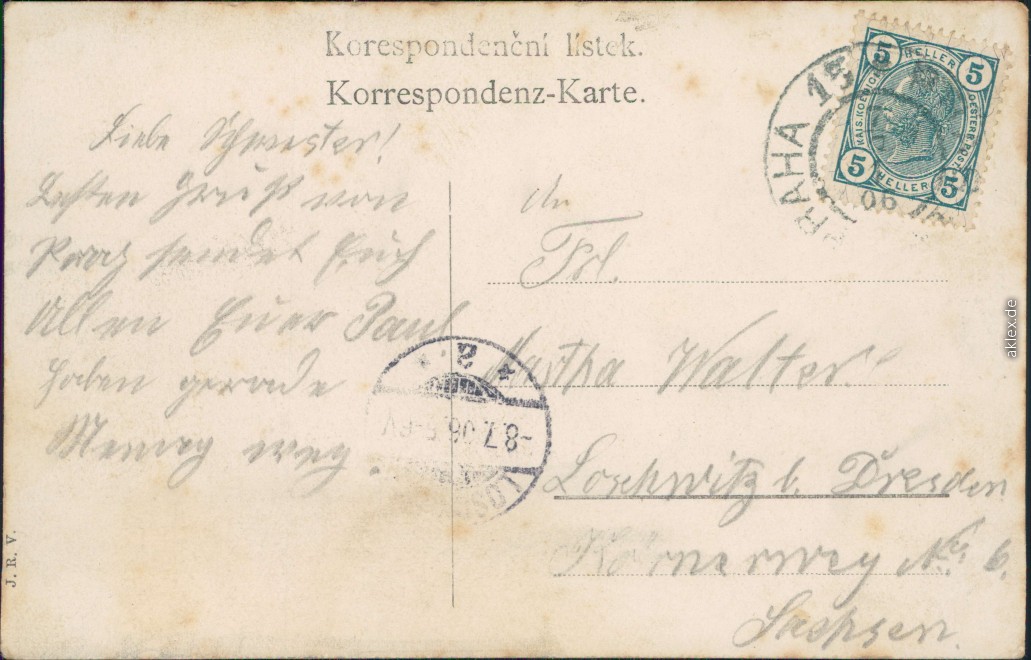 Korespondenční lístek.
Korrespondenz-Karte.
Liebe Schwester!
Besten Gruß von
Prag sendet Euch
Allen Euer Paul
haben gerade
weg.
An
Frl.
Martha Walter.
Loschwitz b. Dresden
Körnerweg No. 6.
Sachsen.
PRAHA 15
06
5 HELLER 5
KAIS. KOENIGL. OESTERR. POST
5 HELLER 5
* 2. *
-8.7.06. 5-6V
LOS
J. R. V.
aklex.de